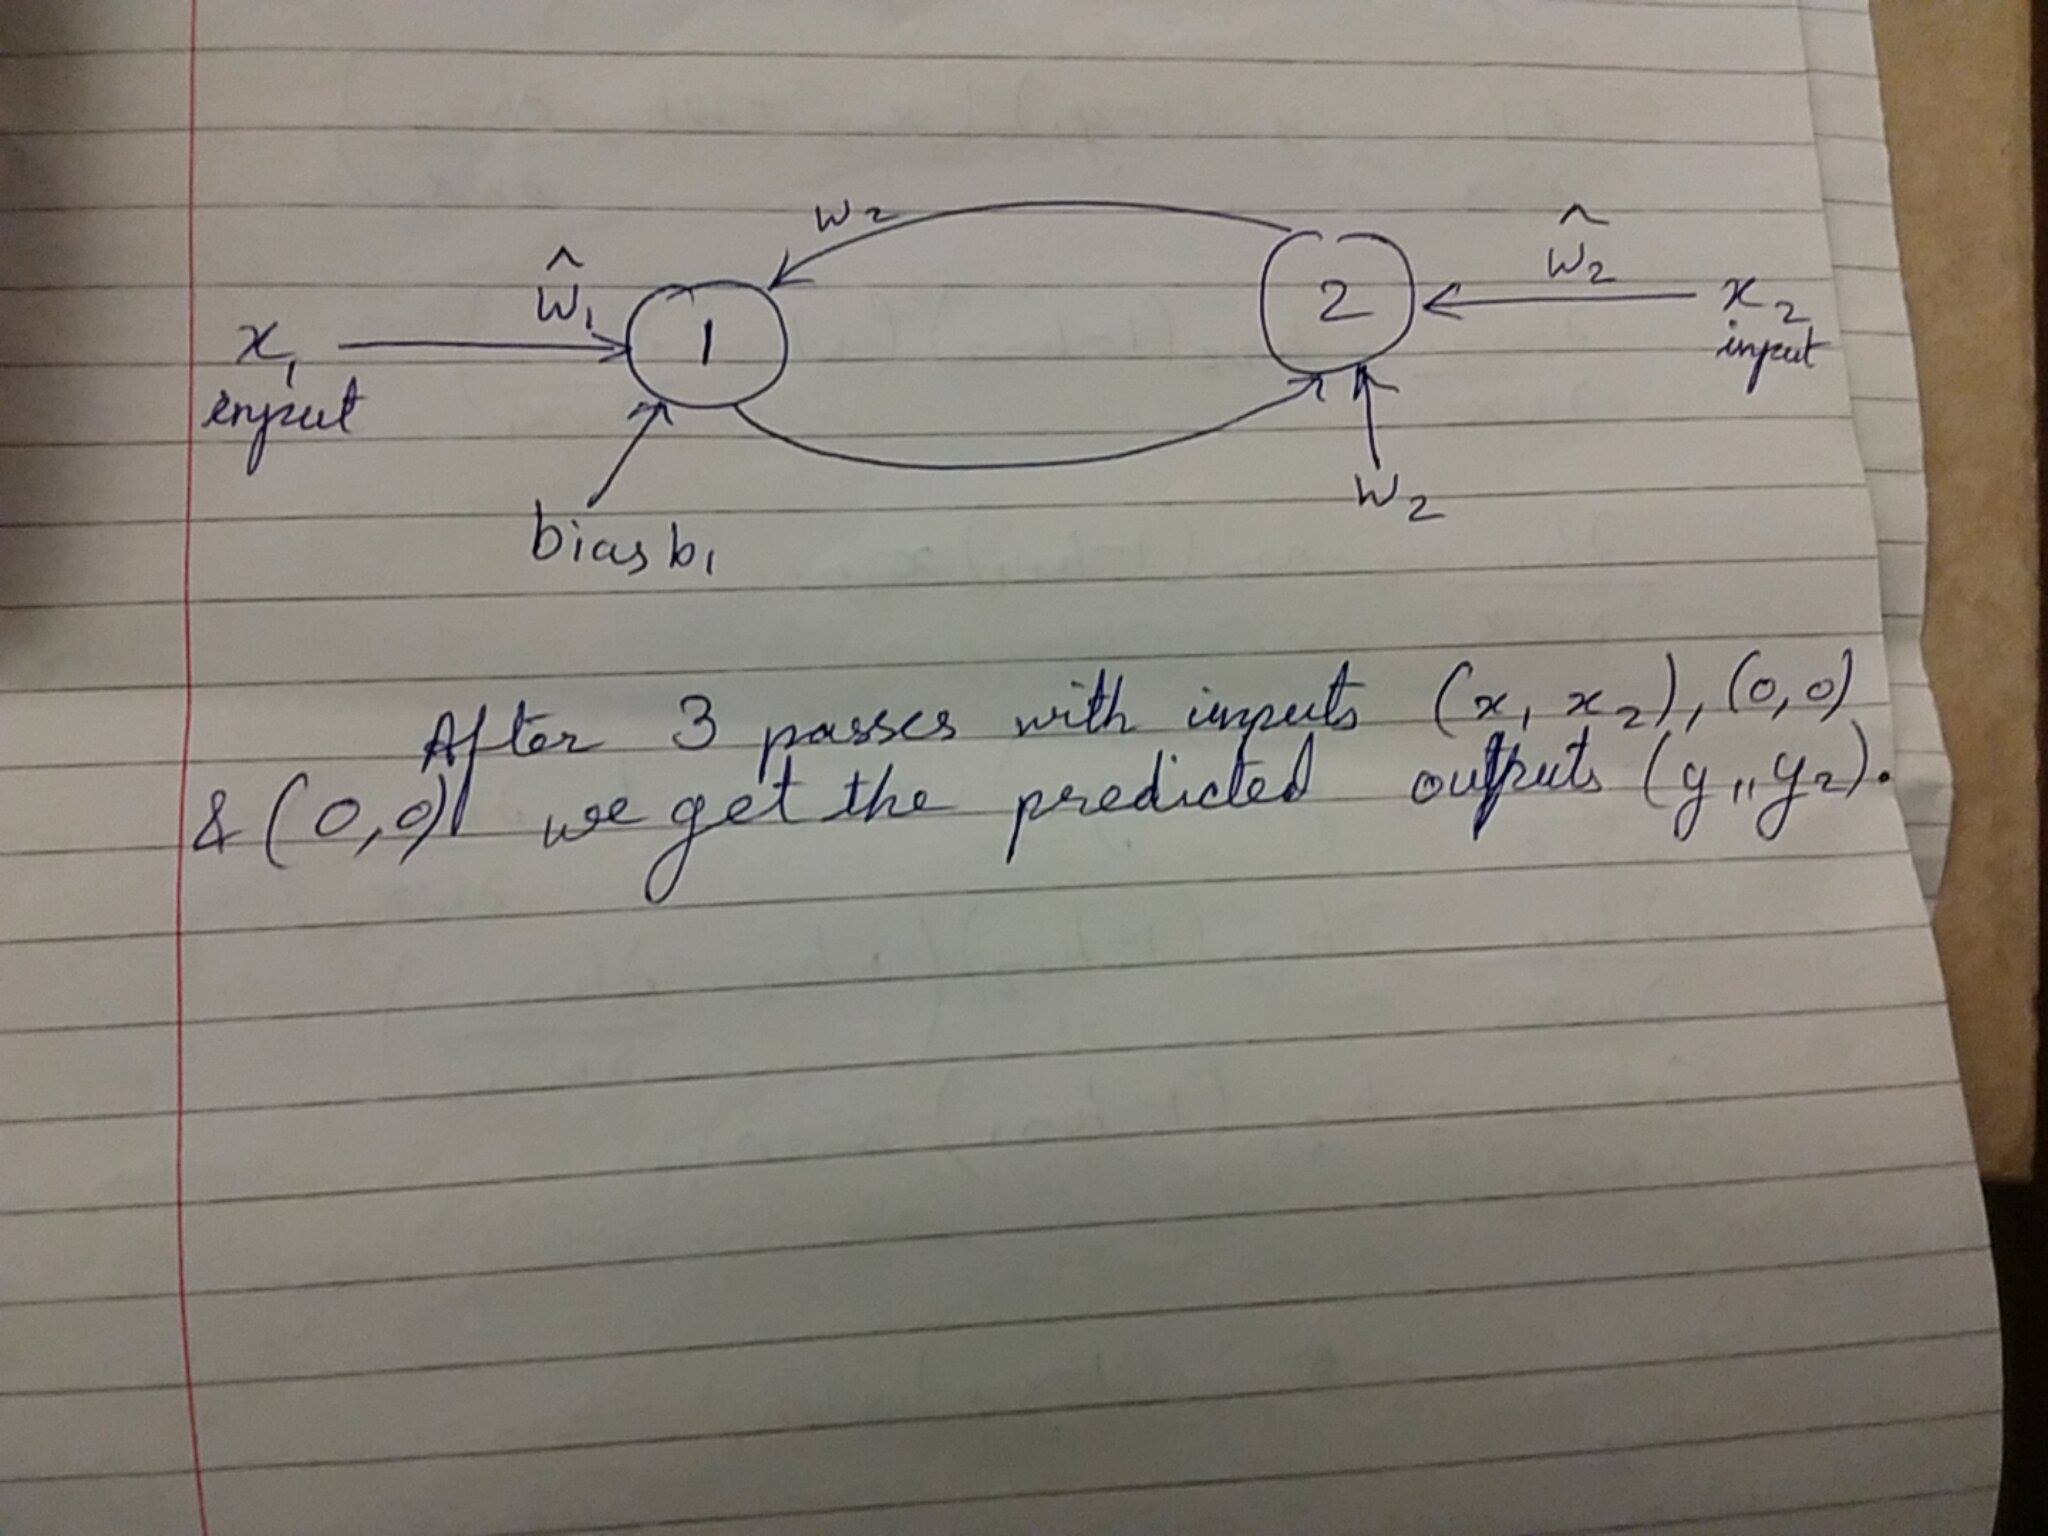 w2
ŵ1
ŵ2
x1
input
1
2
x2
input
bias b1
w2
After 3 passes with inputs (x1 x2), (0,0)
& (0,0) we get the predicted outputs (y1, y2).